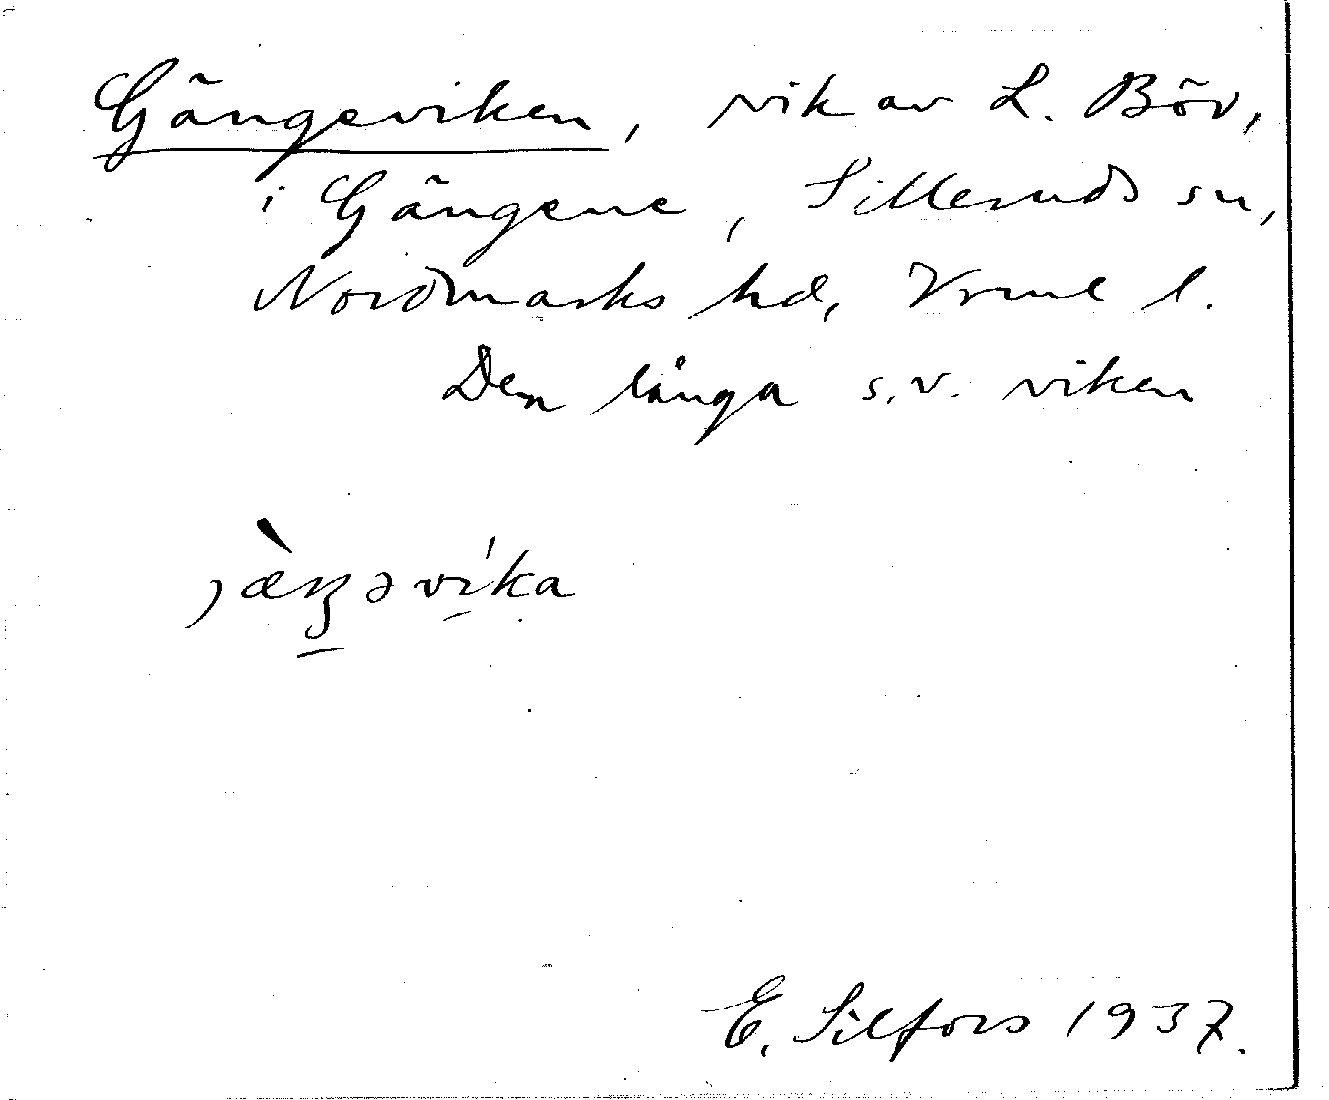 Gängeviken, vik av L. Böv,
i Gängene, Silleruds sn,
Nordmarks hd, Vrml l.
Den långa s.v. viken
jæ̀ŋəvíka
E. Silfors 1937.